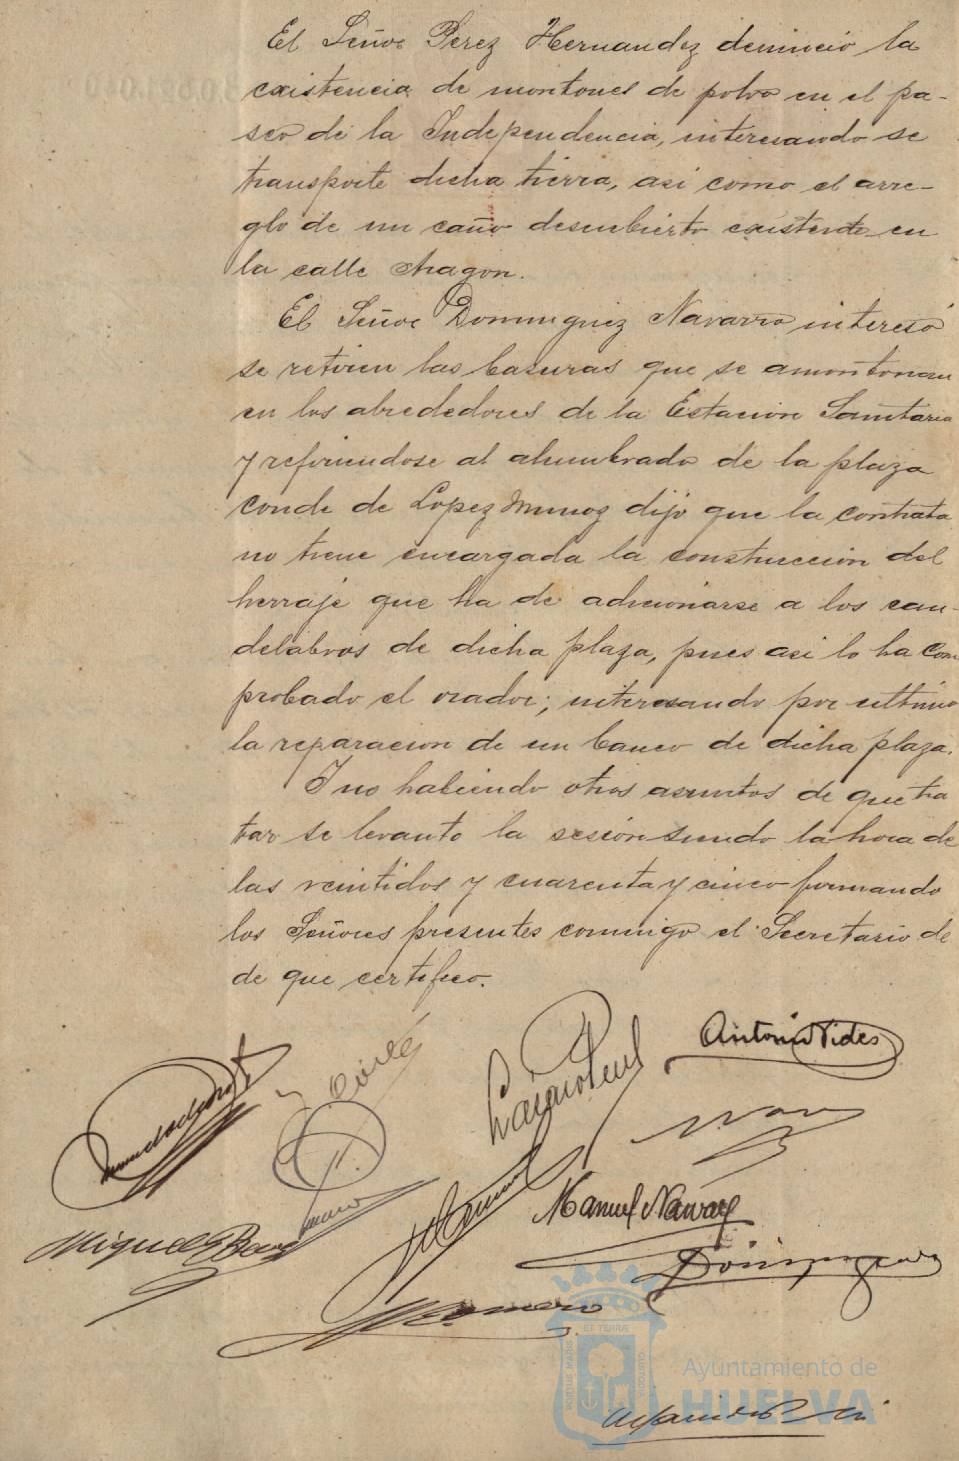 El Señor Perez Hernandez denunció la
existencia de montones de polvo en el pa-
seo de la Independencia, interesando se
transporte dicha tierra, asi como el arre-
glo de un caño descubierto existente en
la calle Aragon.
El Señor Dominguez Navarro interesó
se retiren las basuras que se amontonan
en los abrededores de la Estacion Sanitaria
y refiriendose al alumbrado de la plaza
conde de Lopez Munoz dijo que la contrata
no tiene encargada la construccion del
herraje que ha de adicionarse a los can-
delabros de dicha plaza, pues asi lo ha com
probado el orador; interesando por ultimo
la reparacion de un banco de dicha plaza.
Y no habiendo otros asuntos de que tra
tar se levanto la sesión siendo la hora de
las veintidos y cuarenta y cinco firmando
los Señores presentes conmigo el Secretario de
de que certifico.
Antonio Vides
Manuel Navarro
Miguel
Dominguez
Romero
PORTUS MARIS
ET TERRÆ
CUSTODIA
Ayuntamiento de
HUELVA